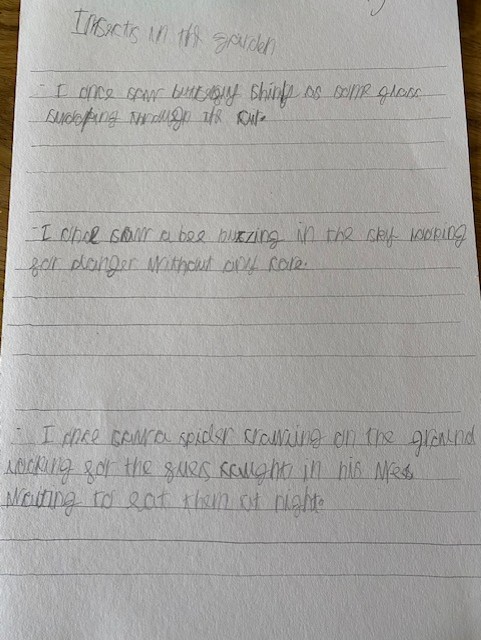 Insects in the garden
- I once saw butterfly shiny as some glass
swooping through the
- I once saw a bee buzzing in the sky looking
for danger without any care.
- I once saw a spider crawling on the ground
looking for the flies caught in his
Waiting to eat them at night.